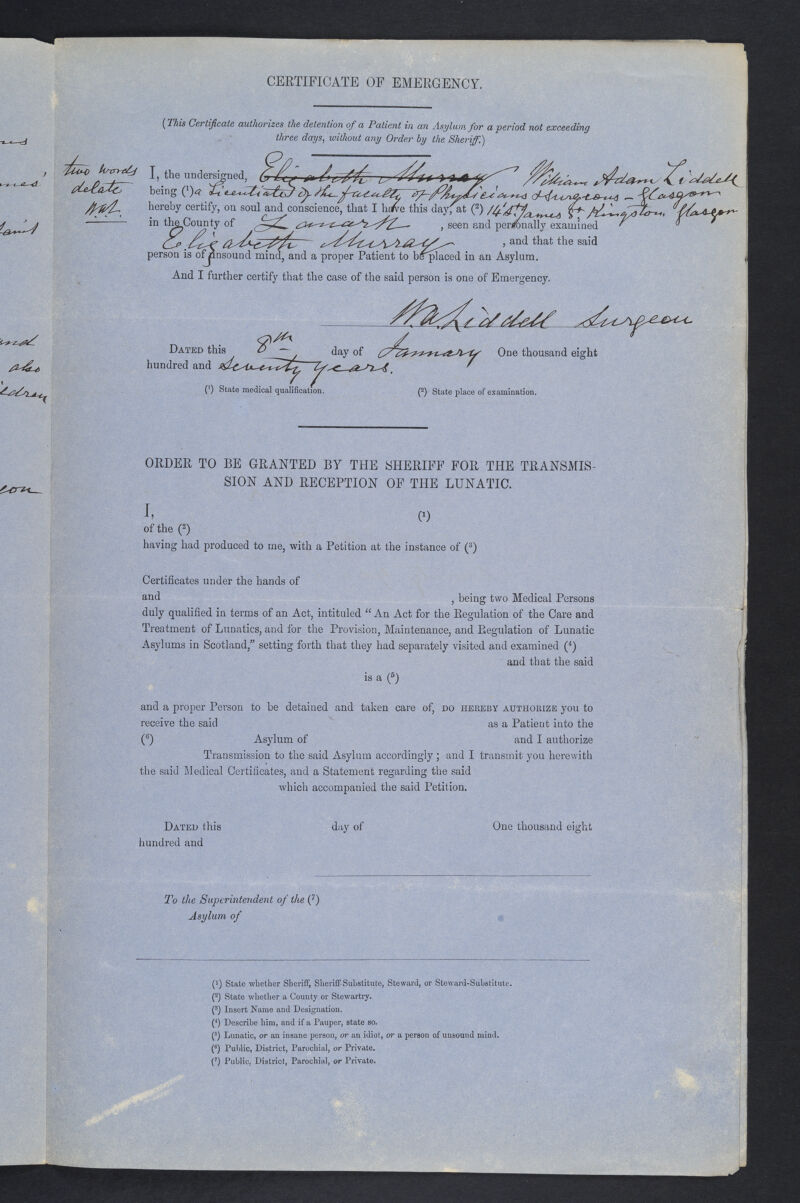 CERTIFICATE OF EMERGENCY.
(This Certificate authorizes the detention of a Patient in an Asylum for a period not exceeding
three days, without any Order by the Sheriff.)
two words
delate
W.A.L.
I, the undersigned, Elizabeth Murray William Adam Liddell
being (¹) a Licentiate of the faculty of Physicians & Surgeons - Glasgow
hereby certify, on soul and conscience, that I have this day, at (²) 14 St. James St. Kingston Glasgow
in the County of Lanark , seen and personally examined
Elizabeth Murray , and that the said
person is of unsound mind, and a proper Patient to be placed in an Asylum.
And I further certify that the case of the said person is one of Emergency.
W.A. Liddell Surgeon
DATED this 8th day of January One thousand eight
hundred and Seventy years.
(¹) State medical qualification. (²) State place of examination.
ORDER TO BE GRANTED BY THE SHERIFF FOR THE TRANSMIS-
SION AND RECEPTION OF THE LUNATIC.
I, (¹)
of the (²)
having had produced to me, with a Petition at the instance of (³)
Certificates under the hands of
and , being two Medical Persons
duly qualified in terms of an Act, intituled “An Act for the Regulation of the Care and
Treatment of Lunatics, and for the Provision, Maintenance, and Regulation of Lunatic
Asylums in Scotland,” setting forth that they had separately visited and examined (⁴)
and that the said
is a (⁵)
and a proper Person to be detained and taken care of, DO HEREBY AUTHORIZE you to
receive the said as a Patient into the
(⁶) Asylum of and I authorize
Transmission to the said Asylum accordingly; and I transmit you herewith
the said Medical Certificates, and a Statement regarding the said
which accompanied the said Petition.
DATED this day of One thousand eight
hundred and
To the Superintendent of the (⁷)
Asylum of
(¹) State whether Sheriff, Sheriff-Substitute, Steward, or Steward-Substitute.
(²) State whether a County or Stewartry.
(³) Insert Name and Designation.
(⁴) Describe him, and if a Pauper, state so.
(⁵) Lunatic, or an insane person, or an idiot, or a person of unsound mind.
(⁶) Public, District, Parochial, or Private.
(⁷) Public, District, Parochial, or Private.
and
also